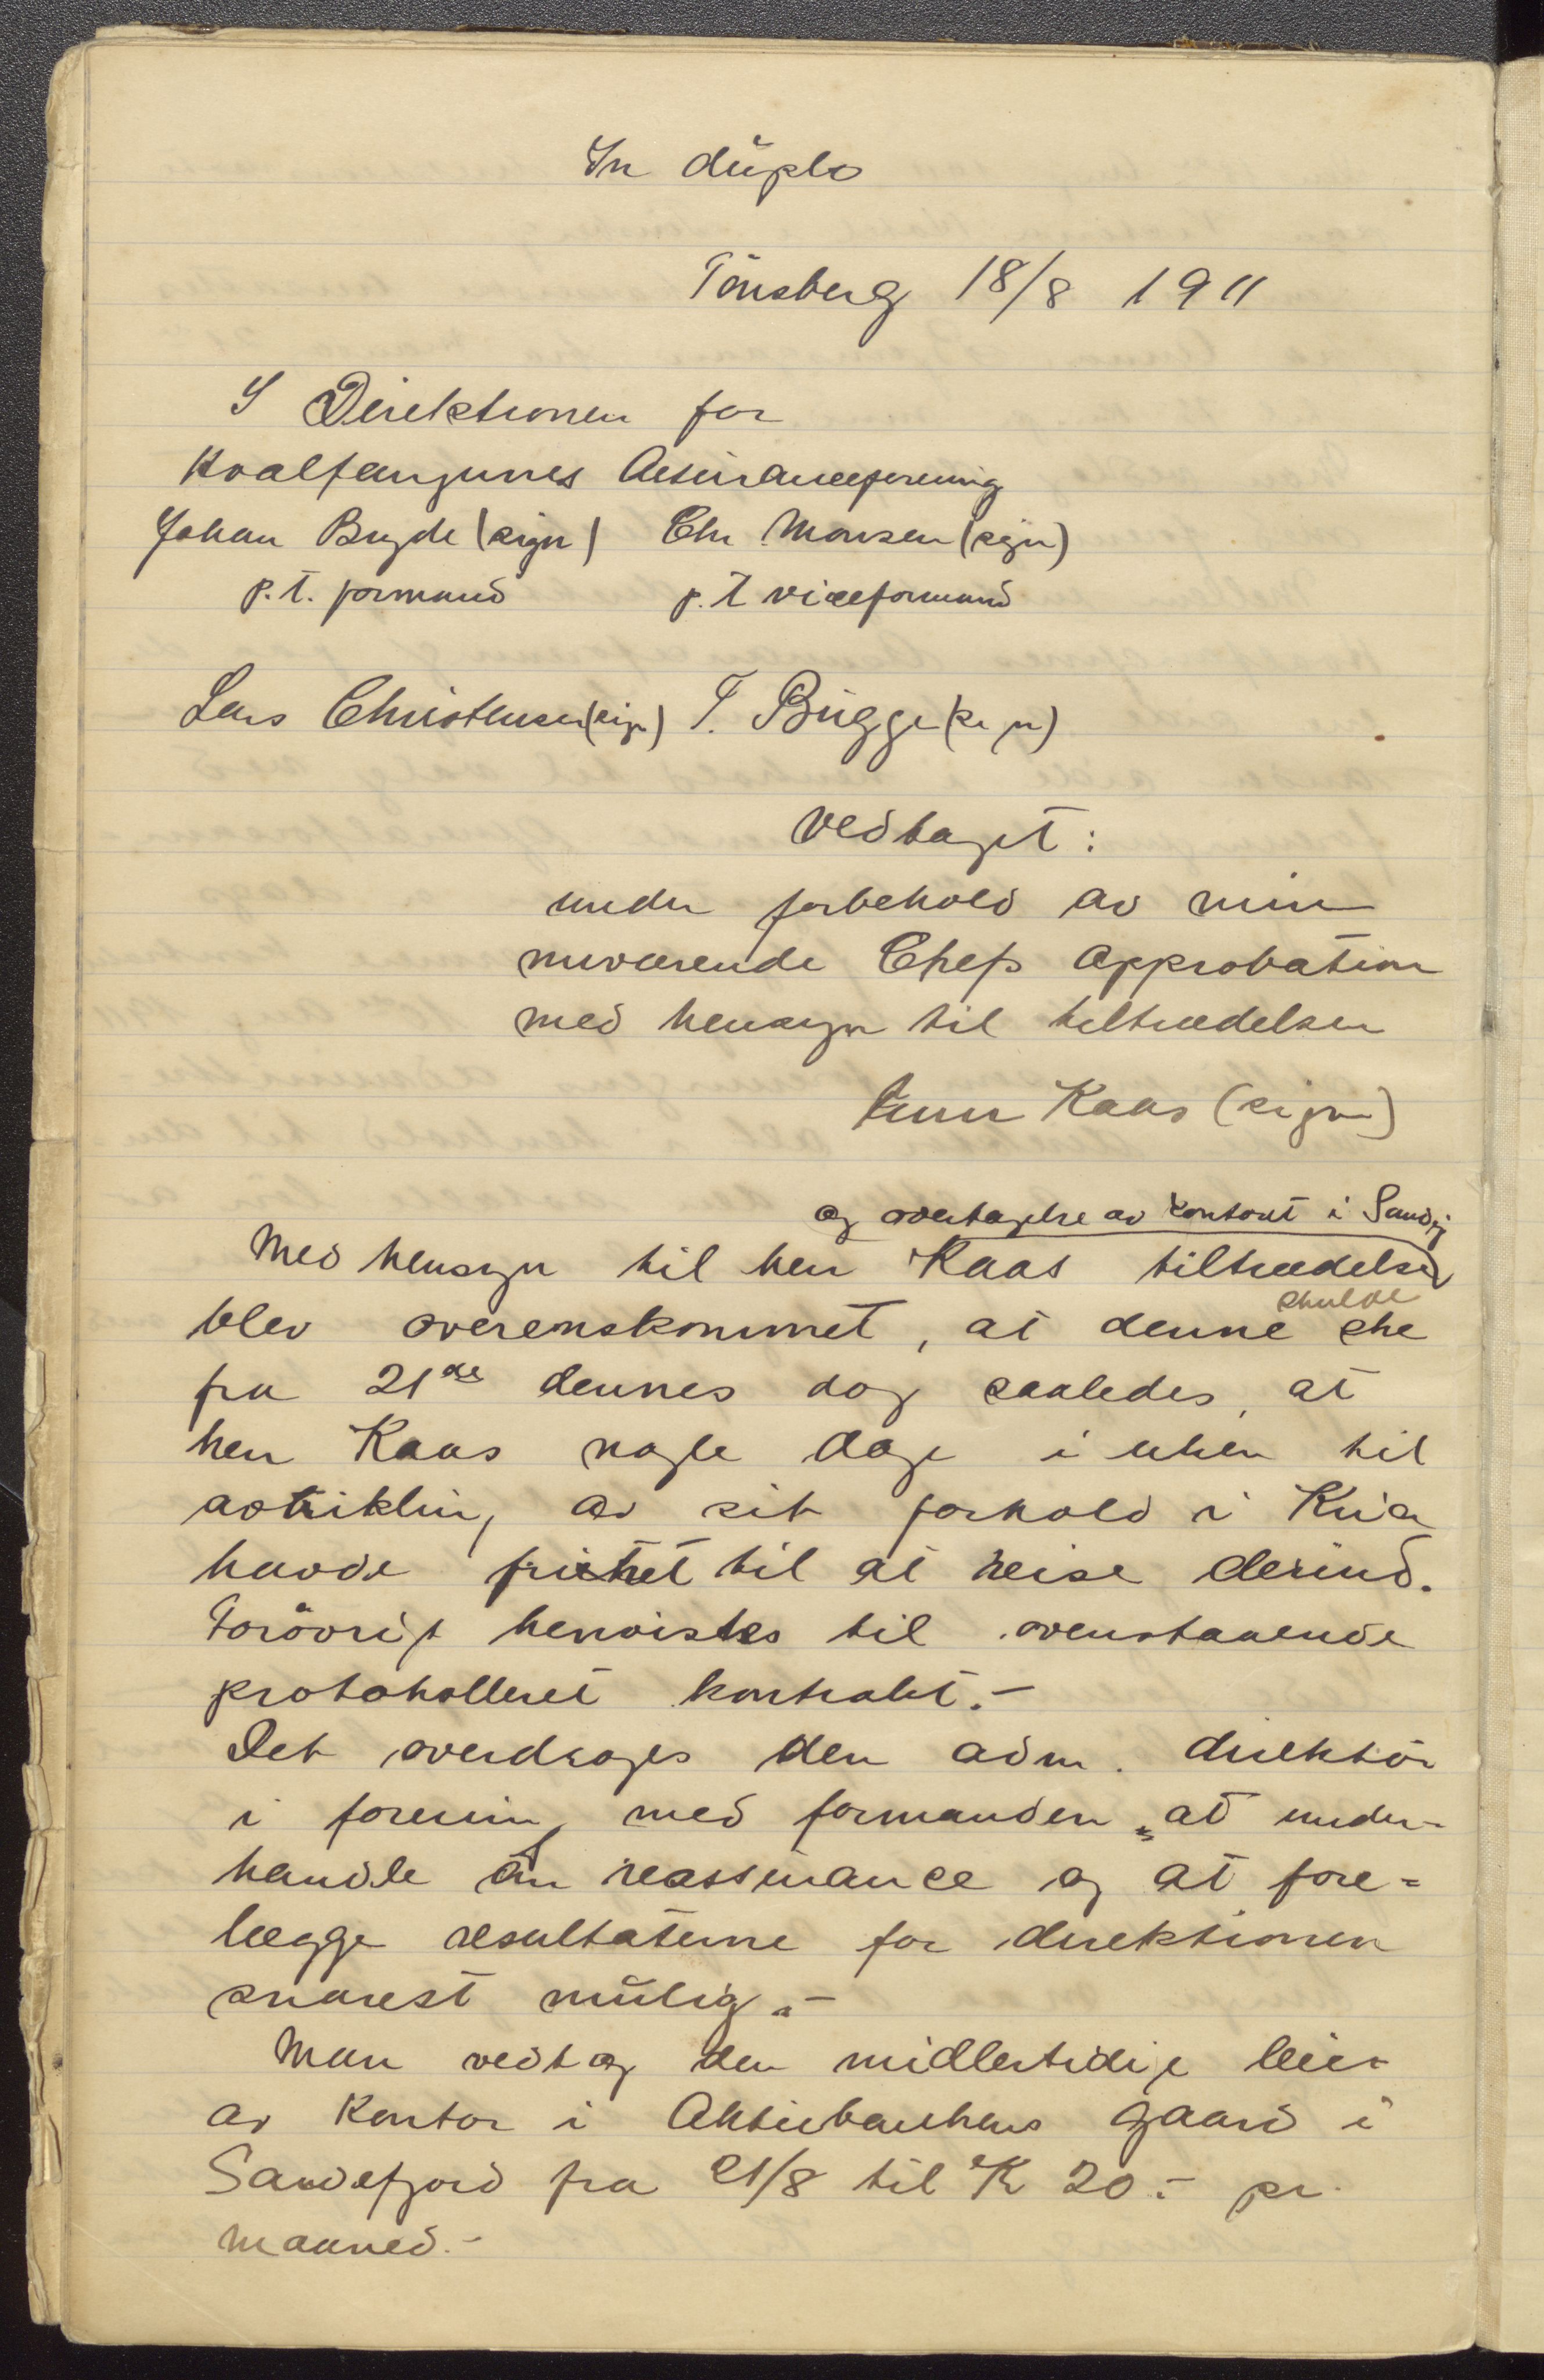 In duplo
Tönsberg 18/8 1911
I Direktionen for
Hvalfangernes Assuranceforening
Johan Bryde (sign) Chr. Monsen (sign)
p.t. formand p.t viceformand
Lars Christensen (sign) T. Bugge (sign)
Vedtaget:
under forbehold av min
nuværende Chefs Approbation
med hensyn til tiltrædelsen
Kaas (sign)
og overtagelse av kontoret i Sandefj
Med hensyn til herr Kaas tiltrædelse
blev overenskommet, at denne skulde ske
fra 21de dennes dog saaledes, at
herr Kaas nogle dage i uken til
avvikling av sit forhold i Kria
havde frihet til at reise derind.
Forövrigt henvistes til ovenstaaende
protokolleret kontrakt.-
Det overdrages den adm. direktör
i forening med formanden at under-
handle om reassurance og at fore-
lægge resultaterne for direktionen
snarest mulig.-
Man vedtog den midlertidige leie
av Kontor i Aktiebankens gaard i
Sandefjord fra 21/8 til Kr 20.- pr.
maaned.-